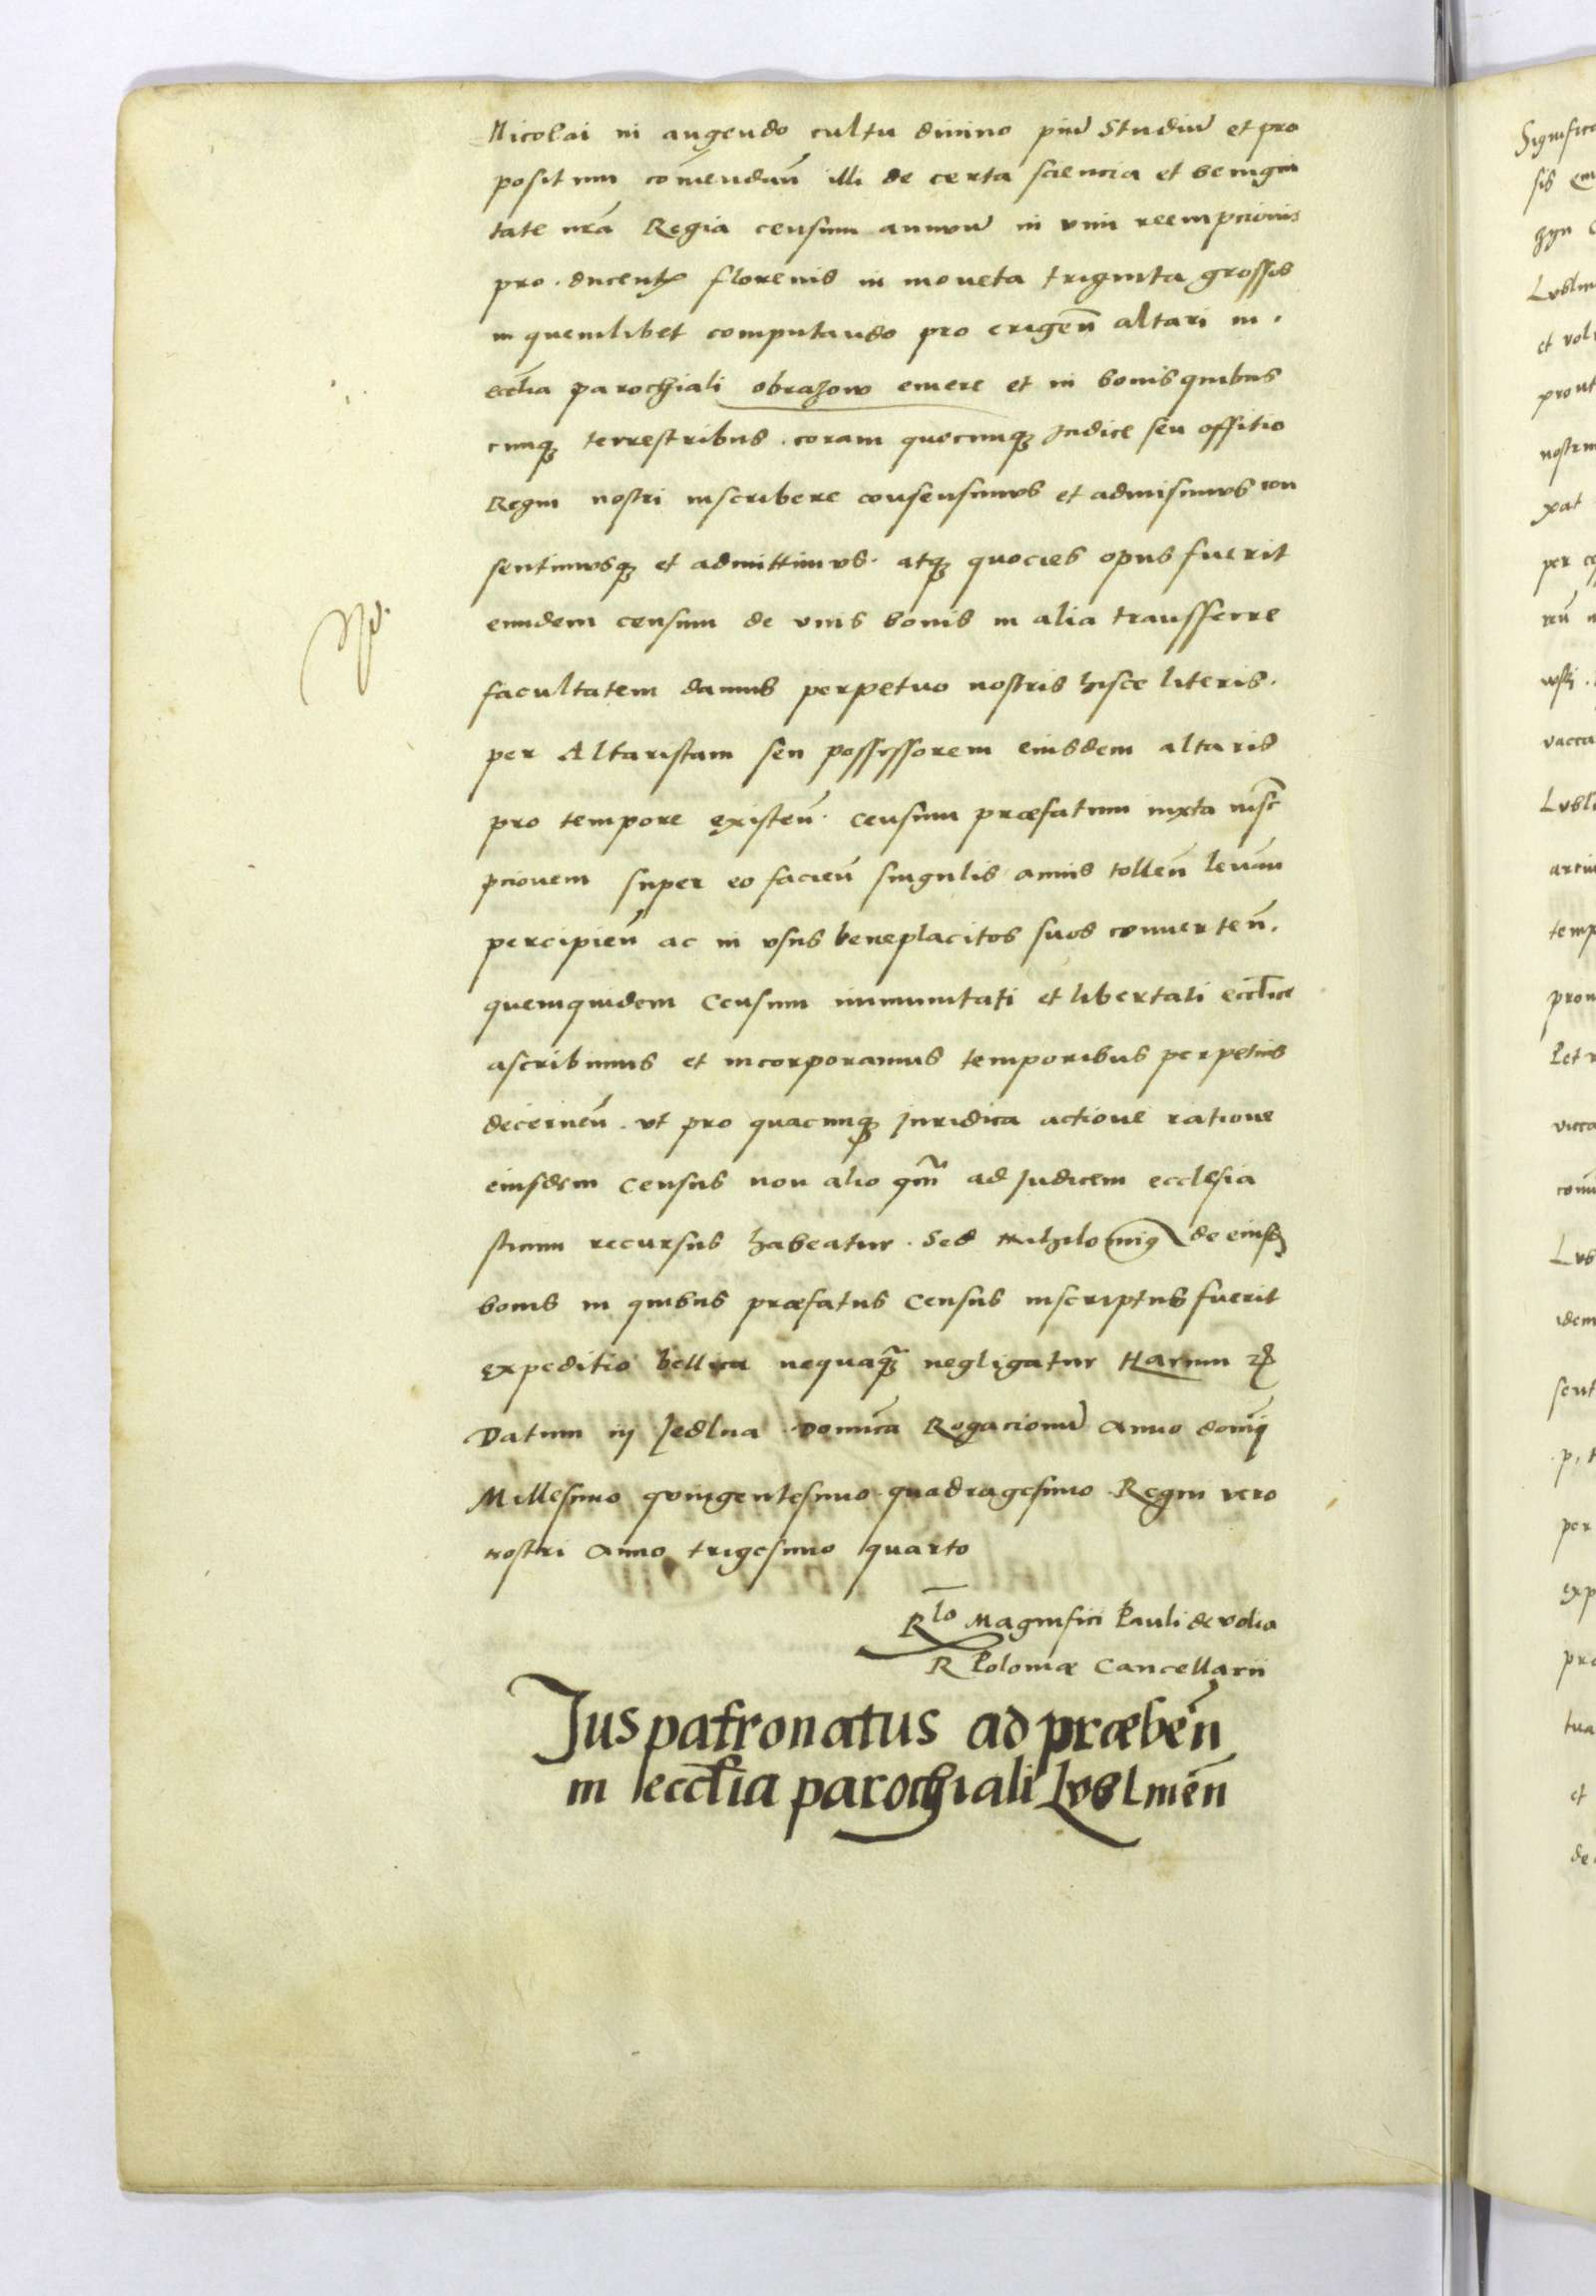 Nicolai in augendo cultu divino piũ Studiũ et pro
positum com̃endan̄ illi de certa sciencia et benigni
tate nr̃a Regia censum annuũ in vim reempcionis
pro ducent̃ florenis in moneta triginta grossis
in quemlibet computando pro erigen̄ altari in
eccl̃ia parochiali obrazow emere et in bonis quibus
cunqꝫ terrestribus coram quocunqꝫ Iudice seu offitio
Regni nostri inscribere consensimus et admisimus con
sentimusqꝫ et admittimus. atqꝫ quocies opus fuerit
eundem censum de vnis bonis in alia transsferre
facultatem damus perpetuo nostris hisce literis.
per Altaristam seu possessorem eiusdem altaris
pro tempore existen̄. censum præfatum iuxta inscr̃
pcionem super eo facien̄ singulis annis tollen̄ levan̄
percipien̄ ac in vsus beneplacitos suos conuerten̄.
quemquidem Censum immunitati et libertati eccl̃ice
ascribimus et incorporamus temporibus perpetuis
decernen̄. vt pro quacunqꝫ Iuridica actione ratione
eiusdem Census non alio qm̃ ad Iudicem ecclesia
sticum recursus habeatur. Sed nihilominꝯ de eiusd̃
bonis in quibus præfatus Census inscriptus fuerit
expeditio bellica nequaqꝫ̃ negligatur Harum ꝛc̃
Datum in Jedlna Domin̄ca Rogacionũ Anno domĩ
Millesimo quingentesimo quadragesimo Regni vero
nostri Anno trigesimo quarto
Rl̃o Magnifici Pauli de volia
R Poloniæ Cancellarii
Jus patronatus ad præben̄
in eccl̃ia parochiali Lublinen̄